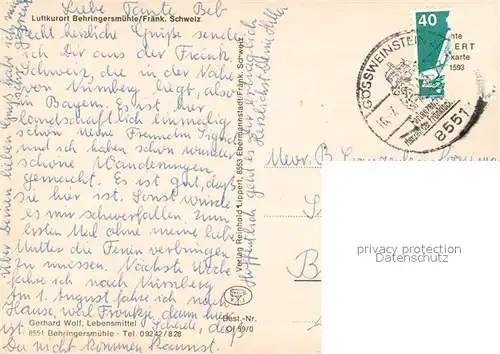 Luftkurort Behringersmühle/Fränk. Schweiz
Liebe Tante Beb
recht herzliche Grüße sende
ich Dir aus der Fränk.
Schweiz, die in der Nähe
von Nürnberg liegt, also
in Bayern. Es ist hier
landschaftlich einmalig
schön. Meine Freundin
und ich haben schon wunder
schöne Wanderungen
gemacht. Es ist gut, daß
sie hier ist. Sonst würde
es mir schwerfallen, zum
ersten Mal ohne meine liebe
Mutter die Ferien verbringen
zu müssen. Nächste Woche
fahre ich nach Nürnberg
Am 1. August fahre ich nach
Hause, weil Fraukje dann hier
ist. Schade, daß
Du nicht kommen kannst.
Über Deinen lieben Gruß habe ich mich
Hoffentlich geht es
Herzlichst Deine
Gerhard Wolf, Lebensmittel
8551 Behringersmühle · Tel. 0 92 42 / 8 28
Verlag Reinhold Lippert, 8553 Ebermannstadt/Fränk. Schweiz
Best.-Nr.
Of 59/0
40
GÖSSWEINSTEIN
8551
hte
ERT
karte
1593
Mevr. B.
B
copyright protection